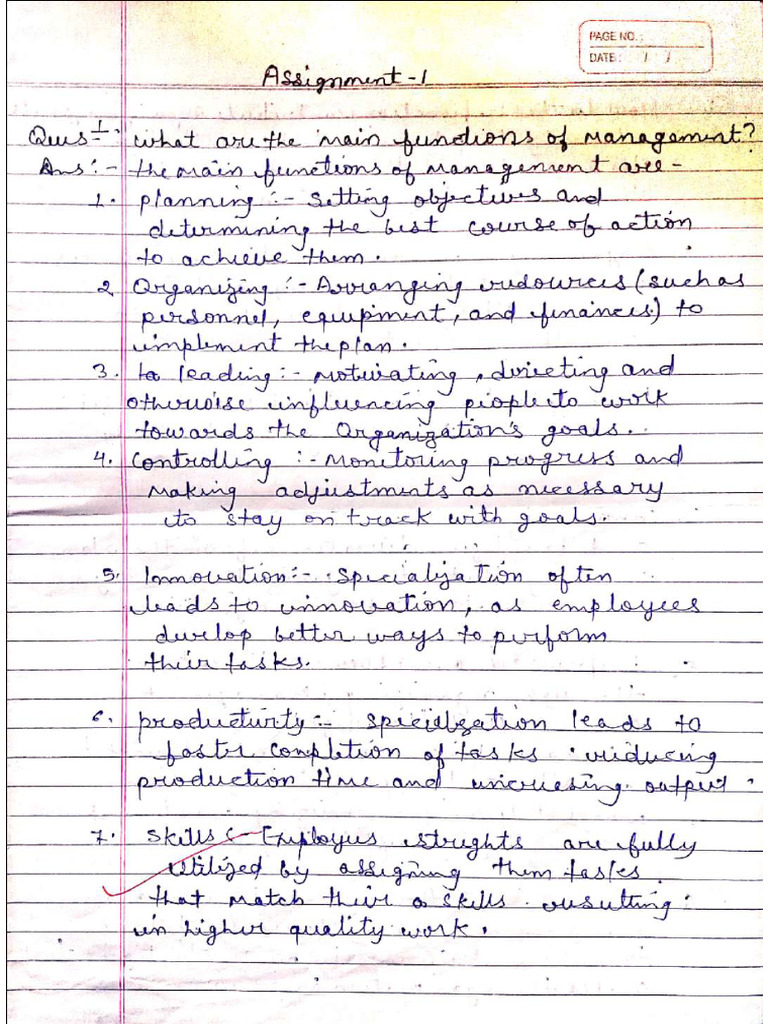 PAGE NO.:
DATE: / /
Assignment-1
Ques 1:- what are the main functions of management?
Ans:- the main functions of management are-
1. planning:- setting objectives and
determining the best course of action
to achieve them.
2 Organizing:- Arranging rudources (such as
personnel, equipment, and finances) to
implement the plan.
3. to leading:- motivating, directing and
otherwise influencing people to work
towards the Organization's goals.
4. Controlling:- Monitoring progress and
making adjustments as necessary
to stay on track with goals.
5. Innovation:- Specialization often
leads to innovation, as employees
develop better ways to perform
their tasks.
6. productivity:- specialization leads to
faster completion of tasks reducing
production time and increasing output.
7. Skills:- Employees strenghts are fully
utilized by assigning them tasks
that match their skills resulting
in higher quality work.